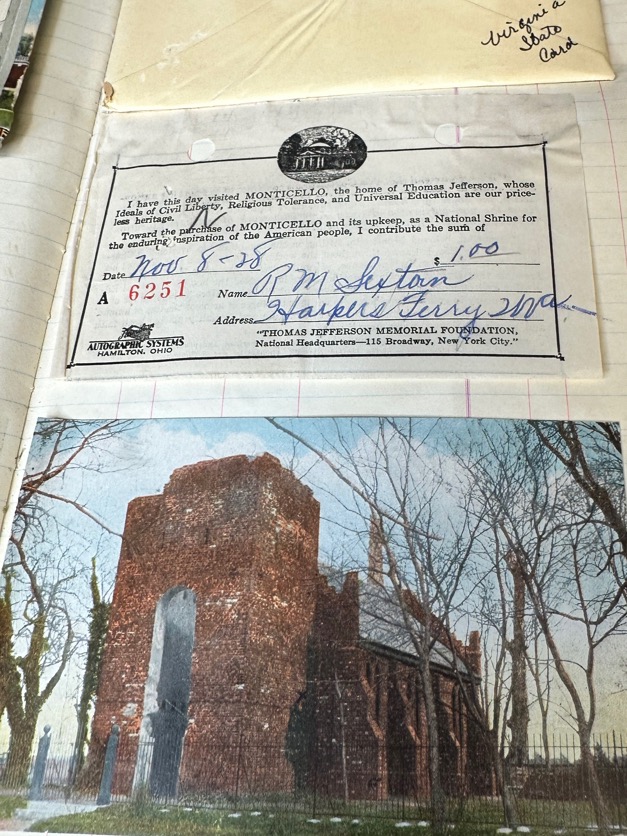 Virginia
State
Card
I have this day visited MONTICELLO, the home of Thomas Jefferson, whose
Ideals of Civil Liberty, Religious Tolerance, and Universal Education are our price-
less heritage.
Toward the purchase of MONTICELLO and its upkeep, as a National Shrine for
the enduring inspiration of the American people, I contribute the sum of
Date Nov. 8-28 $ 1.00
A 6251 Name R M Sextain
Address Harpers Ferry W Va.
AUTOGRAPHIC SYSTEMS
HAMILTON, OHIO
"THOMAS JEFFERSON MEMORIAL FOUNDATION,
National Headquarters—115 Broadway, New York City."